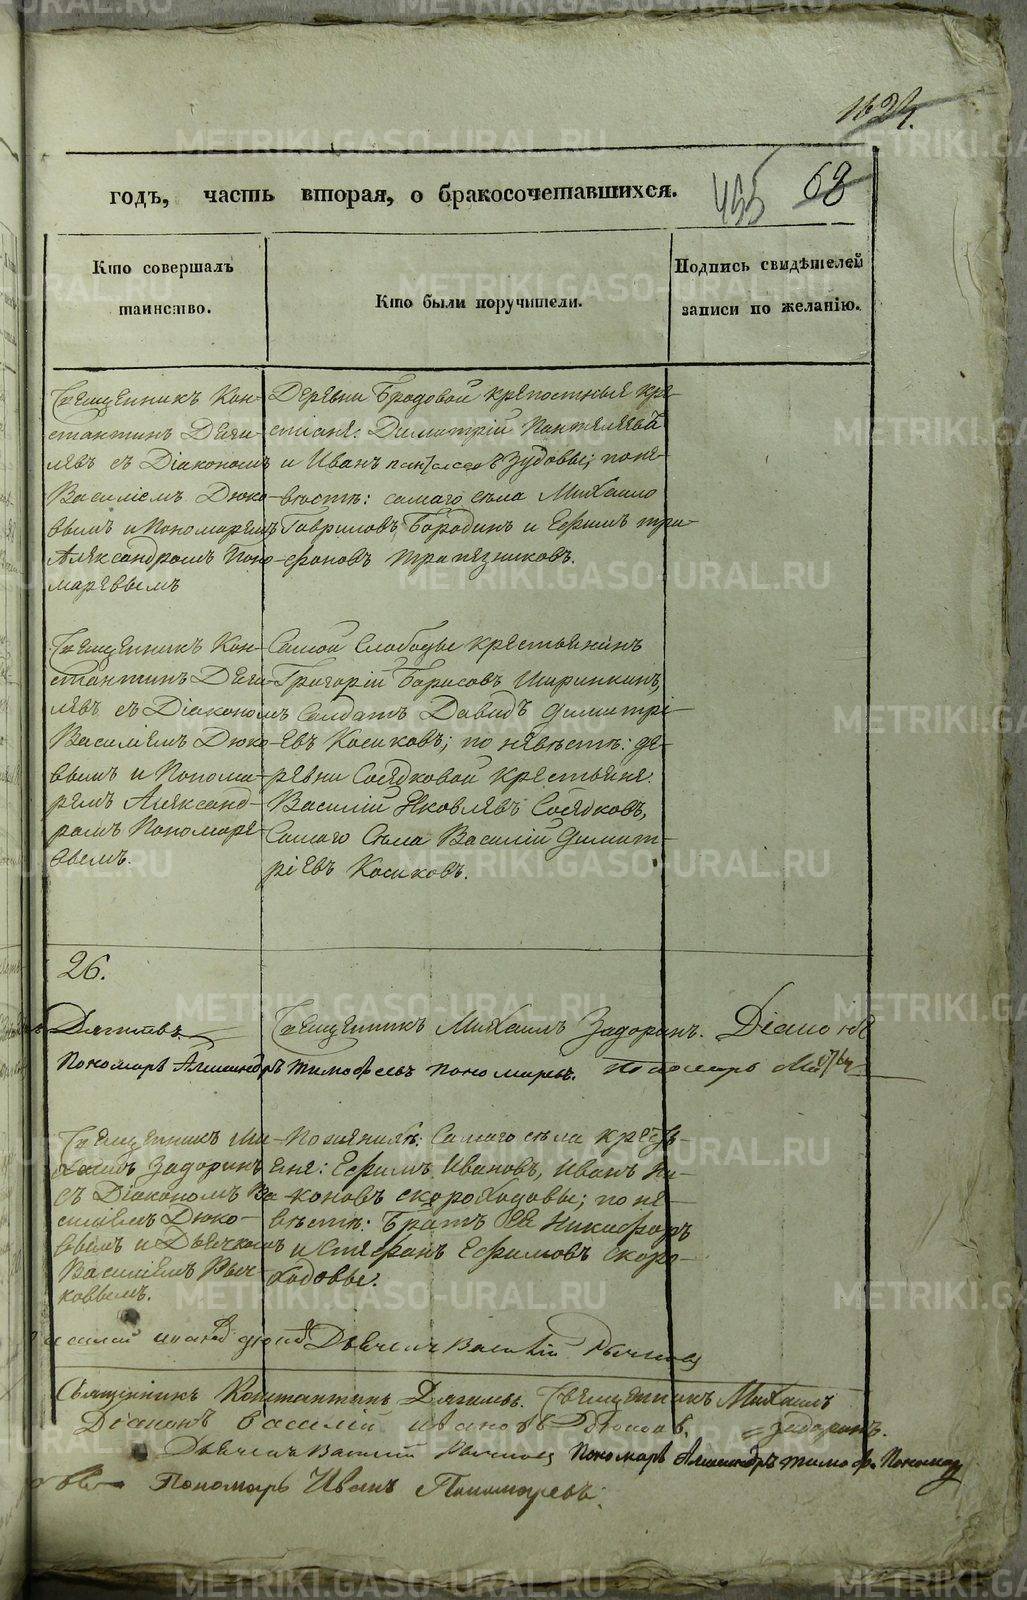 годъ, часть вторая, о бракосочетавшихся.
455 68
Кто совершалъ
таинство.
Кто были поручители.
Подпись свидѣтелей
записи по желанію.
Священникъ Кон-
стантинъ Дяги-
левъ съ Діакономъ
Василіемъ Дюко-
вымъ и Пономаремъ
Александромъ Поно-
маревымъ
Деревни Бродовой крепостные кре-
стіане: Димитрій Пантелеевъ
и Иванъ Зудовы; по не-
вѣстѣ: самаго села Михайло
Гавриловъ Бородинъ и Ефимъ Три-
фоновъ Трапезниковъ.
Священникъ Кон-
стантинъ Дяги-
левъ съ Діакономъ
Василіемъ Дюко-
вымъ и Понома-
ремъ Александ-
ромъ Пономаре-
вымъ.
Самой Слободы крестьянинъ
Григорій Борисовъ Ширинкинъ,
Солдатъ Давидъ Димитрі-
евъ Косиковъ; по невѣстѣ: де-
ревни Соседковой крестьяне:
Василій Яковлевъ Соседковъ,
Самаго Села Василій Димит-
ріевъ Косиковъ.
26.
Дягилевъ
Священникъ Михаилъ Задоринъ. Діаконъ
Пономарь Александръ Тимофеевъ Пономаревъ. Пономарь
Священникъ Ми-
хаилъ Задоринъ
съ Діакономъ Ва-
силіемъ Дюко-
вымъ и Дьячкомъ
Василіемъ Рыч-
ковымъ.
По женихѣ: Самаго села кресть-
яне: Ефимъ Ивановъ, Иванъ Ни-
коновъ Скороходовы; по не-
вѣстѣ: Братъ Ея Никифоръ
и Стефанъ Ефимовъ Скоро-
ходовы.
Дьячекъ Василій Рычковъ
Священникъ Константинъ Дягилевъ. Священникъ Михаилъ
Задоринъ.
Діаконъ Василей Ивановъ Дюковъ.
Дьячекъ Василій Рычковъ Пономарь Александръ Тимоф. Пономар
Пономарь Иванъ Пономаревъ.
METRIKI.GASO-URAL.RU